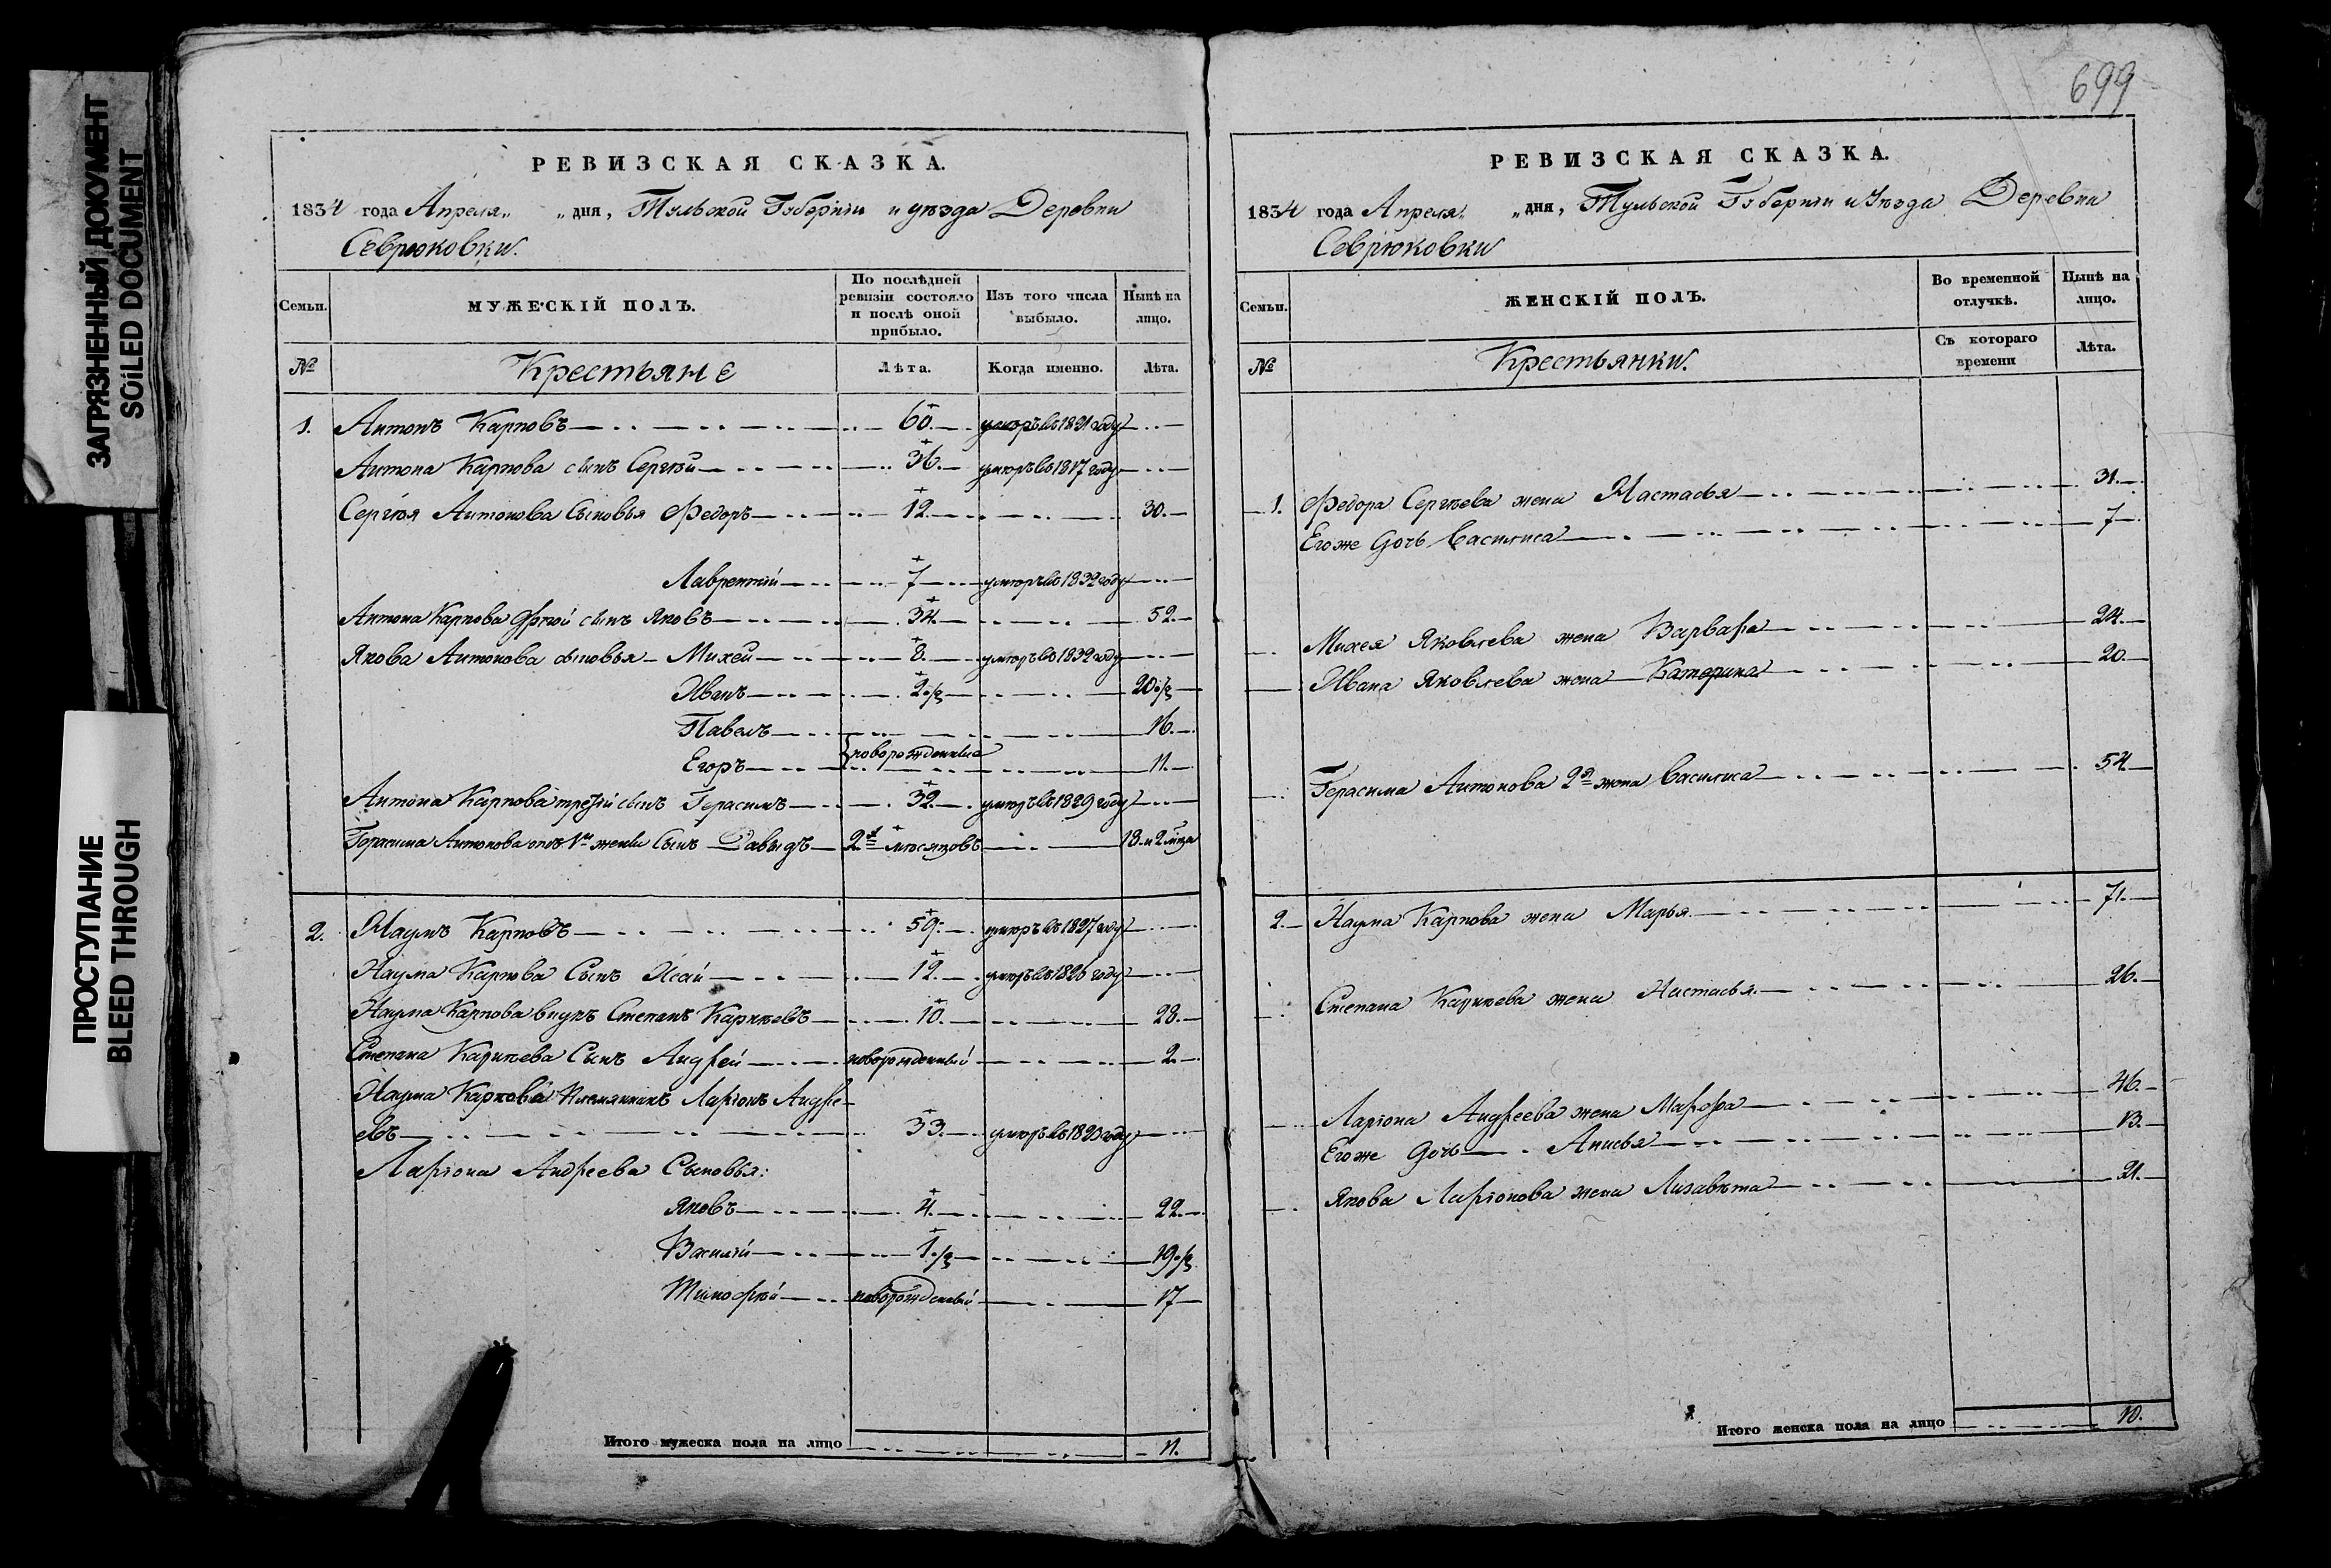 ЗАГРЯЗНЕННЫЙ ДОКУМЕНТ
SOILED DOCUMENT
ПРОСТУПАНИЕ
BLEED THROUGH
РЕВИЗСКАЯ СКАЗКА.
1834 года Апреля „ „ дня, Тульской Губернии и уезда Деревни
Севрюковки.
Семьи.
МУЖЕСКІЙ ПОЛЪ.
По послѣдней ревизіи состояло и послѣ оной прибыло.
Изъ того числа выбыло.
Нынѣ на лицо.
№
Крестьяне
Лѣта.
Когда именно.
Лѣта.
1. Антонъ Карповъ 60. умеръ въ 1821 году
Антона Карпова сынъ Сергѣй 36. умеръ въ 1817 году
Сергѣя Антонова Сыновья Федоръ 12. 30.
Лаврентій 7 умеръ въ 1832 году
Антона Карпова другой сынъ Яковъ 34. 52.
Якова Антонова сыновья Михей 8. умеръ въ 1832 году
Иванъ 2 1/2 20 1/2
Павелъ 16.
новорожденныя
Егоръ 11.
Антона Карпова третій сынъ Герасимъ 32. умеръ въ 1829 году
Герасима Антонова отъ 1й жены Сынъ Давыдъ 2х месяцовъ 18. и 2 м-ца
2. Наумъ Карповъ 59. умеръ въ 1827 году
Наума Карпова Сынъ Исай 12. умеръ въ 1826 году
Наума Карпова внукъ Степанъ Карнѣевъ 10. 28.
Степана Карнѣева Сынъ Андрей новорожденный 2.
Наума Карпова Племянникъ Ларіонъ Андре-
евъ 33. умеръ въ 1823 году
Ларіона Андреева Сыновья:
Яковъ 4. 22.
Василій 1 1/2 19 1/2
Тимофѣй новорожденный 17
Итого мужеска пола на лицо 11.
699
РЕВИЗСКАЯ СКАЗКА.
1834 года Апреля „ „ дня, Тульской Губерніи и Уезда Деревни
Севрюковки
Семьи.
ЖЕНСКІЙ ПОЛЪ.
Во временной отлучкѣ.
Нынѣ на лицо.
№
Крестьянки.
Съ котораго времени
Лѣта.
1. Федора Сергѣева жена Настасья 31.
Его же дочь Василиса 7
Михея Яковлева жена Варвара 24.
Ивана Яковлева жена Катерина 20.
Герасима Антонова 2я жена Василиса 54
2. Наума Карпова жена Марья 71.
Степана Карнѣева жена Настасья 26.
Ларіона Андреева жена Марфа 46.
Его же дочь Анисья 13.
Якова Ларіонова жена Лизавѣта 21.
Итого женска пола на лицо 10.